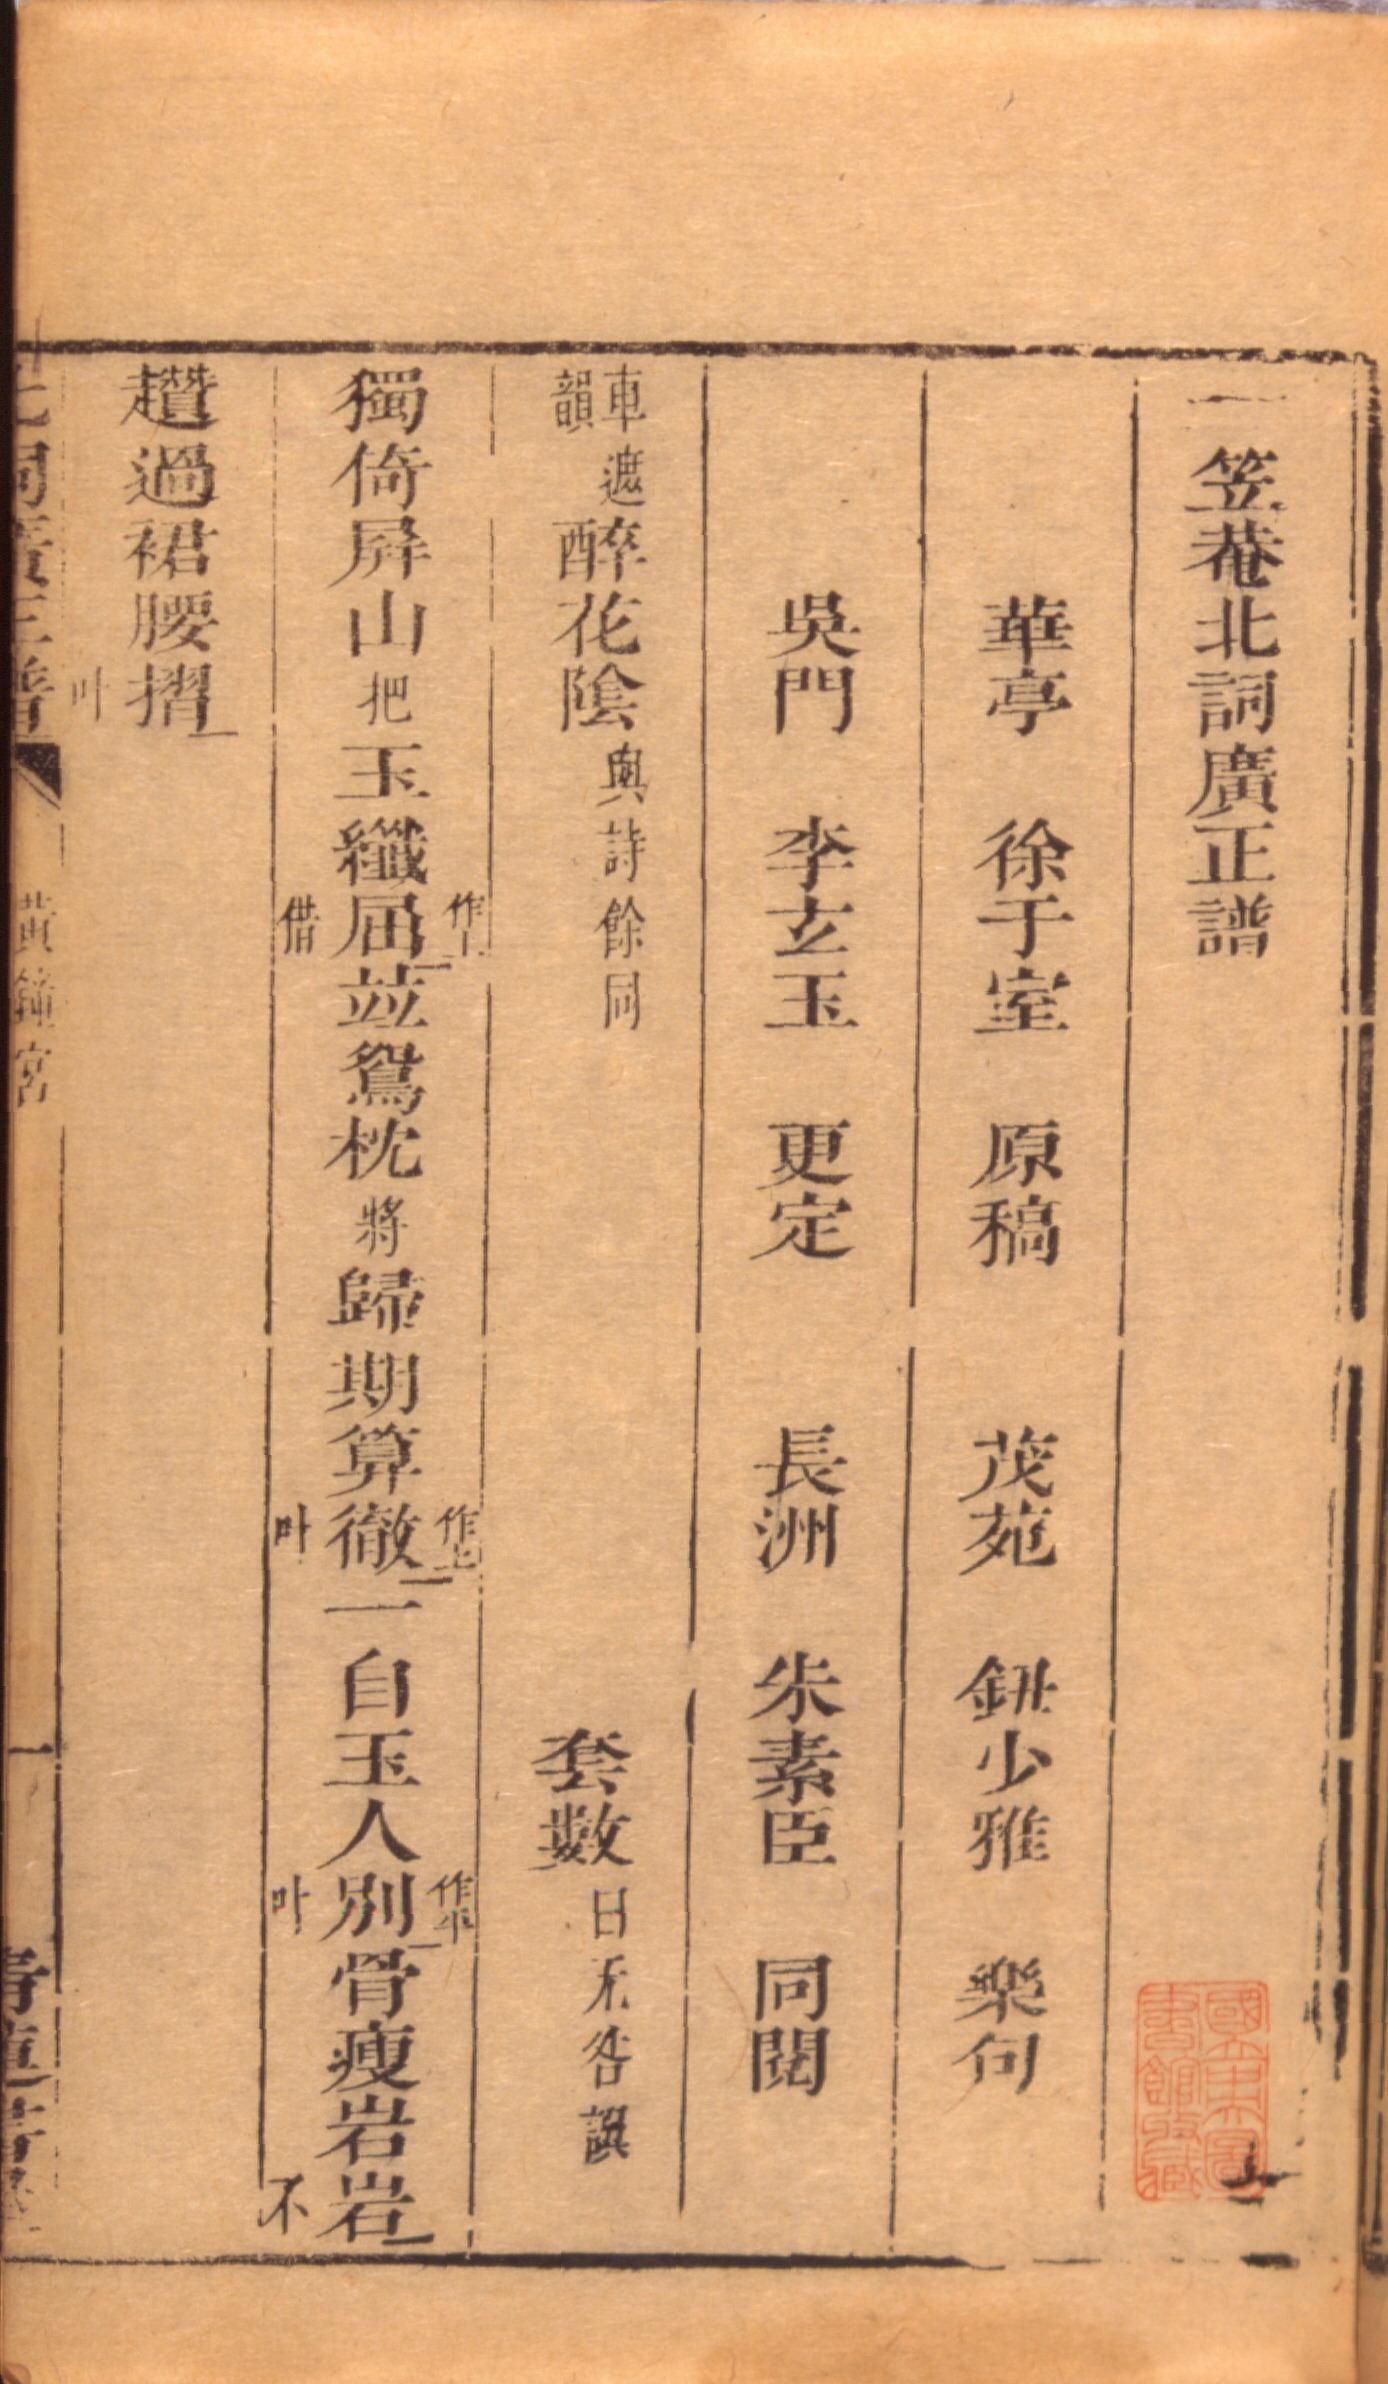 一笠菴北詞廣正譜
華亭 徐于室 原稿 茂苑 鈕少雅 樂句
吳門 李玄玉 更定 長洲 朱素臣 同閱
車遮韻 醉花陰 與詩餘同 套數 白无咎譔
獨倚屏山把玉纖屈作上借並鴛枕將歸期算徹作上叶一自玉人別作平叶骨瘦岩岩不
趲過裙腰摺叶
北詞廣正譜 黃鐘宮 一 青蓮書屋
國立中央圖書館收藏